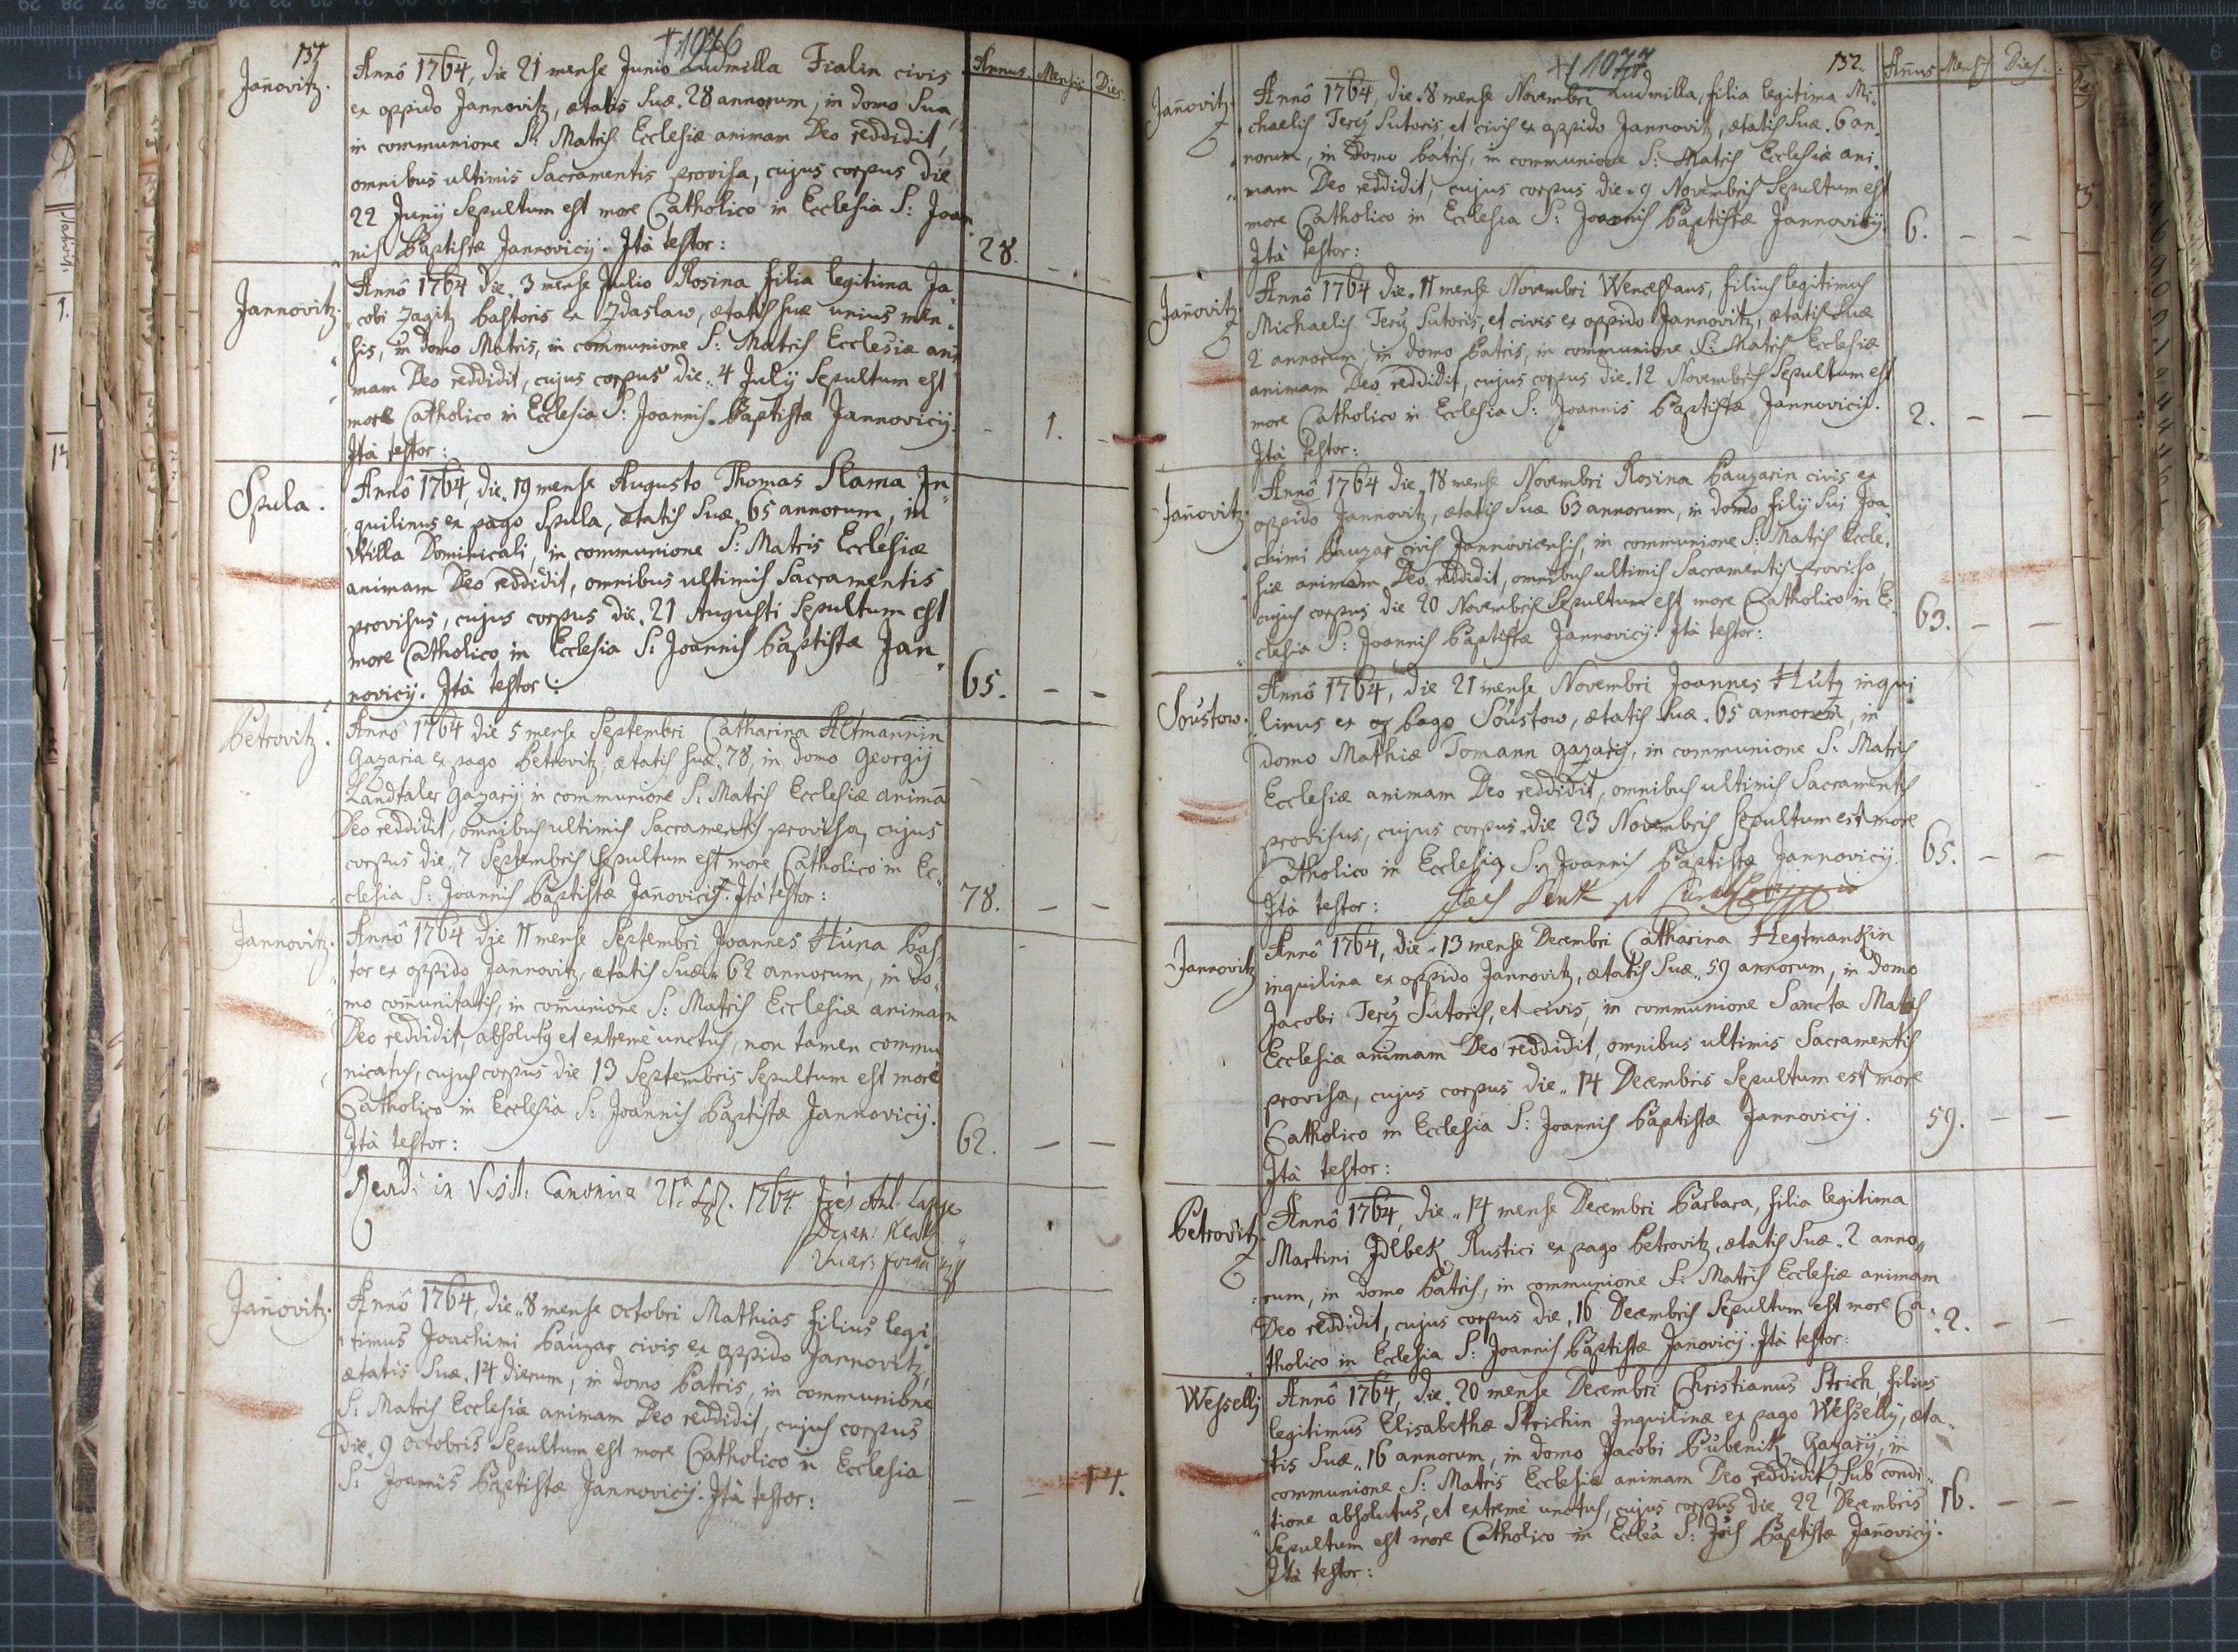 131
†1076
Annus. Mensis Dies.
Jan̄ovitz.
Annô 1764, die 21 mense Junio Ludmilla Fialin civis
ex oppido Jannovitz, ætatis Suæ. 28 annorum, in domo Sua,
in communione S: Matris Ecclesiæ animam Deo reddidit,
omnibus ultimis Sacramentis provisa, cujus corpus die
22 Junij Sepultum est more Catholico in Ecclesia S: Joan„
nis Baptistæ Jannovicij. Ità testor:
28. – –
Jannovitz.
Annô 1764 die. 3 mense Julio Rosina filia legitima Ja„
cobi Zagitz Pastoris ex Zdaslaw, ætatis suæ unius men„
sis, in domo Matris, in communione S: Matris Ecclesiæ ani„
mam Deo reddidit, cujus corpus die„ 4 Julij Sepultum est
more Catholico in Ecclesia S: Joannis Baptistæ Jannovicij.
Ità testor:
– 1. –
Spula.
Annô 1764, die„ 19 mense Augusto Thomas Slama In„
quilinus ex pago Spula, ætatis Suæ. 65 annorum, in
Willa Dominicali, in communione S: Matris Ecclesiæ
animam Deo reddidit, omnibus ultimis Sacramentis
provisus, cujus corpus die. 21 Augusti Sepultum est
more Catholico in Ecclesia S: Joannis Baptistæ Jan„
novicij. Ità testor:
65. – –
Petrovitz.
Annô 1764 die 5 mense Septembri Catharina Altmannin
Gazaria ex pago Petrovitz, ætatis suæ. 78, in domo Georgij
Landtaler Gazarij in communione S: Matris Ecclesiæ animā
Deo reddidit, omnibus ultimis Sacramentis provisa, cujus
corpus die„ 7 Septembris Sepultum est more Catholico in Ec„
clesia S: Joannis Baptistæ Jan̄ovicij. Ità testor:
78. – –
Jannovitz.
Annô 1764 die 11 mense Septembri Joannes Húna Pas„
tor ex oppido Jannovitz, ætatis Suæ„ 62 annorum, in do„
mo com̄unitatis, in com̄unione S: Matris Ecclesiæ animam
Deo reddidit, absolutq et extremè unctus, non tamen commu
nicatus, cujus corpus die 13 Septembris Sepultum est more
Catholico in Ecclesia S: Joannis Baptistæ Jannovicij.
Ità testor:
62. – –
in Visit: Canonica 21ª 1764
Jan̄ovitz.
Annô 1764, die„ 8 mense Octobri Mathias filius legi„
timus Joachimi Pauzar civis ex oppido Jannovitz,
ætatis Suæ. 14 dierum, in domo Patris, in communione
S: Matris Ecclesiæ animam Deo reddidit, cujus corpus
die„ 9 Octobris Sepultum est more Catholico in Ecclesia
S: Joannis Baptistæ Jannovicij. Ità testor:
– – 14.
†1077
132.
Añus Mensis Dies.
Jan̄ovitz.
Annô 1764, die„ 8 mense Novembri Ludmilla, filia legitima Mi„
chaelis Terij Sutoris, et civis ex oppido Jannovitz, ætatis Suæ. 6 an„
norum, in Domo Patris, in communione S: Matris Ecclesiæ ani„
mam Deo reddidit, cujus corpus die„ 9 Novembris Sepultum est
more Catholico in Ecclesia S: Joannis Baptistæ Jannovicij.
Ità testor:
6. – –
Jan̄ovitz
Annô 1764 die„ 11 mense Novembri Wenceslaus, filius legitimus
Michaelis Terij Sutoris, et civis ex oppido Jannovitz, ætatis Suæ
2 annorum, in domo Patris, in communione S: Matris Ecclesiæ
animam Deo reddidit, cujus corpus die„ 12 Novembris Sepultum est
more Catholico in Ecclesia S: Joannis Baptistæ Jannovicij.
Ità testor:
2. – –
Jan̄ovitz.
Annô 1764 die„ 18 mense Novembri Rosina Pauzarin civis ex
oppido Jannovitz, ætatis Suæ 63 annorum, in domo filij Sui Joa„
chimi Pauzar civis Jannovicensis, in communione S: Matris Eccle„
siæ animam Deo reddidit, omnibus ultimis Sacramentis provisa,
cujus corpus die 20 Novembris Sepultum est more Catholico in Ec„
clesia S: Joannis Baptistæ Jannovicij. Ità testor:
63. – –
Soústow.
Annô 1764, die 21 mense Novembri Joannes Hutz inqui
linus ex op Pago Soústow, ætatis Suæ. 65 annorum, in
domo Mathiæ Tomann Gazarij, in communione S: Matris
Ecclesiæ animam Deo reddidit, omnibus ultimis Sacramentis
provisus, cujus corpus die 23 Novembris Sepultum est more
Catholico in Ecclesia S: Joannis Baptistæ Jannovicij.
Ità testor:
65. – –
Jannovitz
Annô 1764, die„ 13 mense Decembri Catharina Hegtmankin
inquilina ex oppido Jannovitz, ætatis Suæ„ 59 annorum, in domo
Jacobi Terij Sutoris, et civis, in communione Sanctæ Matris
Ecclesiæ animam Deo reddidit, omnibus ultimis Sacramentis
provisa, cujus corpus die„ 14 Decembris Sepultum est more
Catholico in Ecclesia S: Joannis Baptistæ Jannovicij.
Ità testor:
59. – –
Petrovitz.
Annô 1764, die„ 14 mense Decembri Barbara, filia legitima
Martini Jdlbek Rustici ex pago Petrovitz, ætatis Suæ. 2 anno„
rum, in domo Patris, in communione S: Matris Ecclesiæ animam
Deo reddidit, cujus corpus die„ 16 Decembris Sepultum est more Ca„
tholico in Ecclesia S: Joannis Baptistæ Jan̄ovicij. Ità testor:
2. – –
Wesselij
Annô 1764, die„ 20 mense Decembri Christianus Strich, filius
legitimus Elisabethæ Strichin Inquilinæ ex pago Wesselij, æta„
tis Suæ„ 16 annorum, in domo Jacobi Bubenik Gazarij, in
communione S: Matris Ecclesiæ animam Deo reddidit, sub condi„
tione absolutus, et extremè unctus, cujus corpus die 22 Decembris
Sepultum est more Catholico in Ecclea S: Jois Baptistæ Jan̄ovicij.
Ità testor:
16. – –